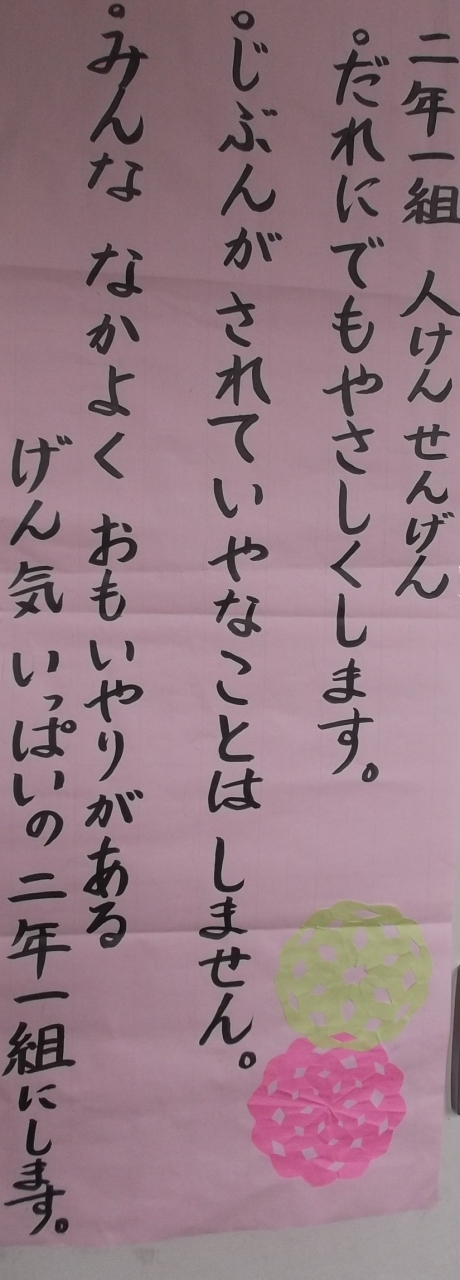 二年一組　人けん せんげん
。だれにでもやさしくします。
。じぶんが されて いやなことは しません。
。みんな なかよく おもいやりがある
げん気 いっぱいの 二年一組にします。